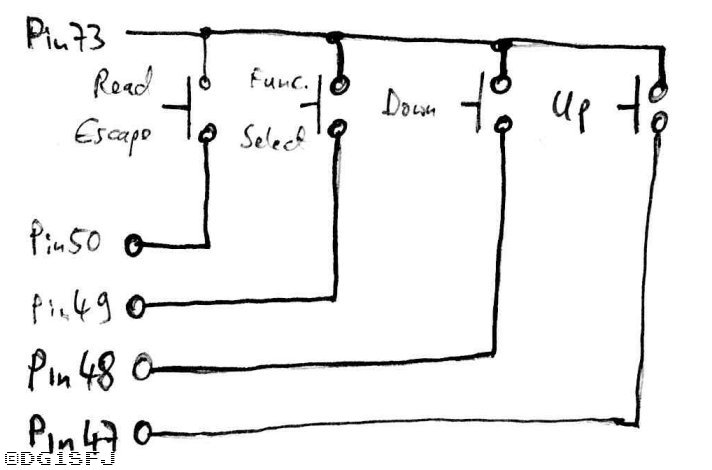 Pin73
Read
Escape
Func.
Select
Down
Up
Pin50
Pin49
Pin48
Pin47
©DG1SFJ